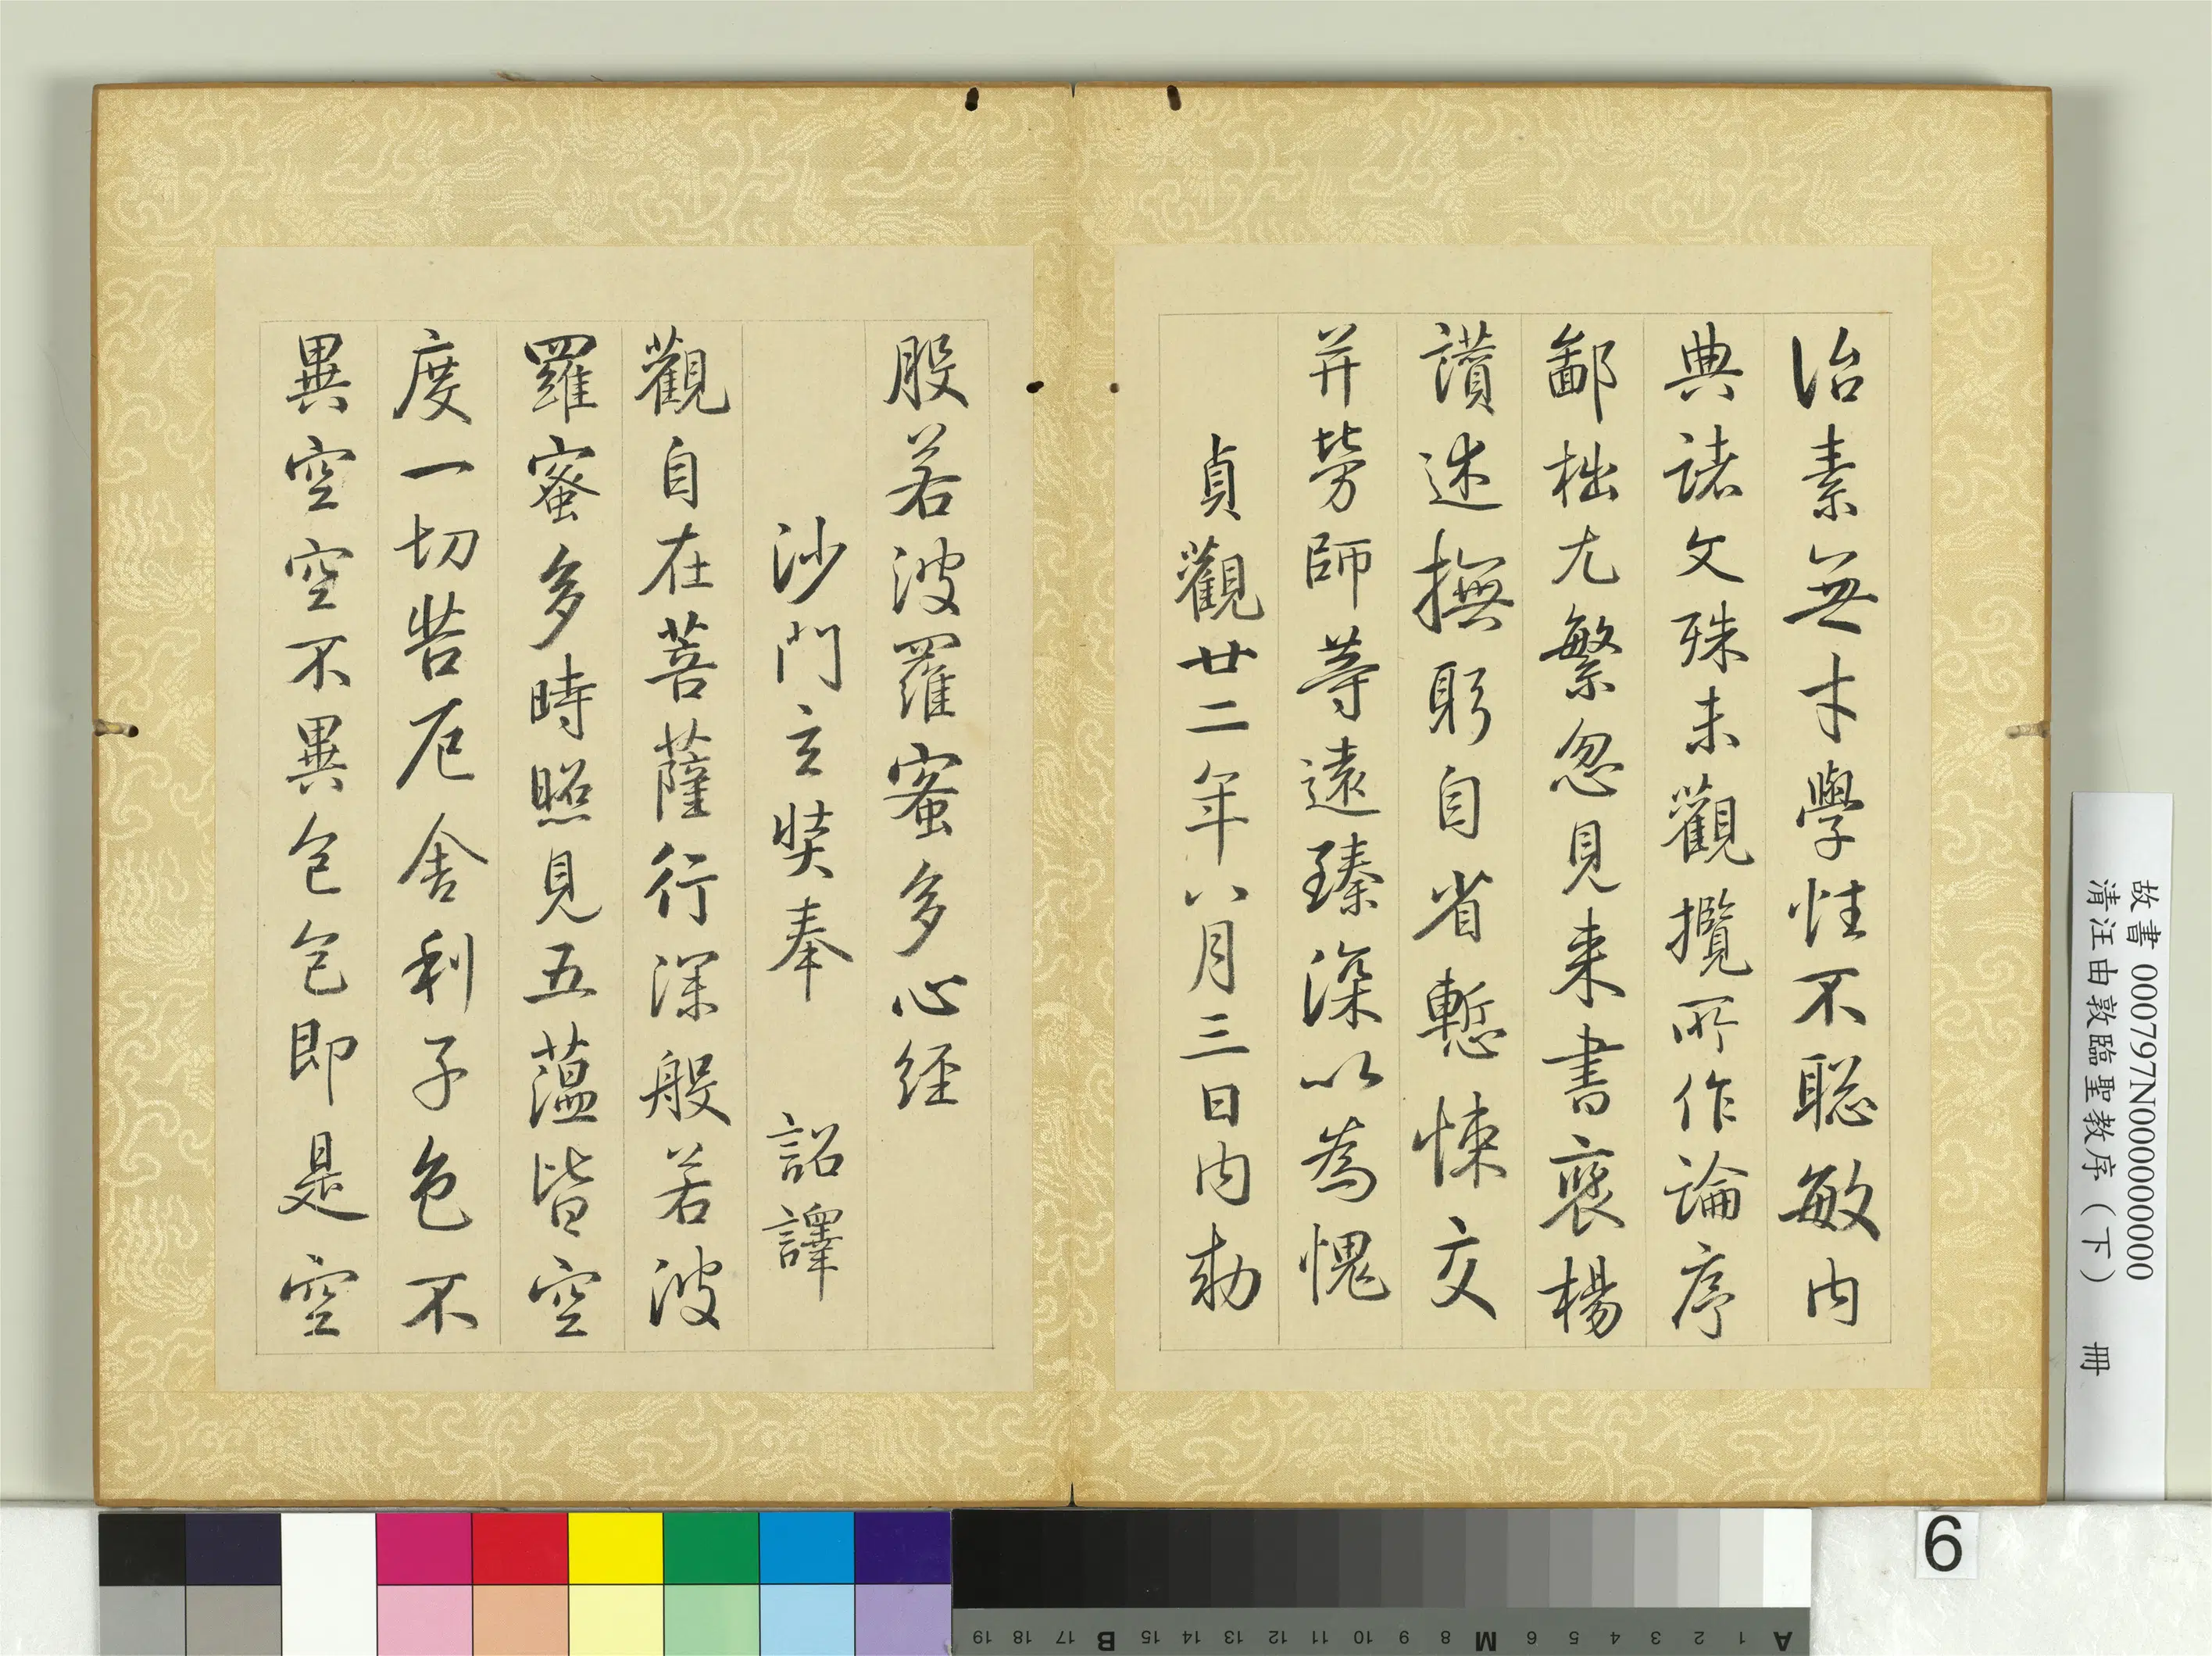 治素無才學性不聡敏内
典諸文殊未觀攬所作論序
鄙拙尤繁忽見来書褒楊
讚述撫躬自省慙悚交
并勞師等遠臻深以為愧
貞觀廿二年八月三日内勅
般若波羅蜜多心経
沙門玄奘奉 詔譯
觀自在菩薩行深般若波
羅蜜多時照見五蕰皆空
度一切苦厄舍利子色不
異空空不異色色即是空
故書 000797N000000000
清汪由敦臨聖教序（下） 冊
6
A 1 2 3 4 5 6 M 8 9 10 11 12 13 14 15 B 17 18 19